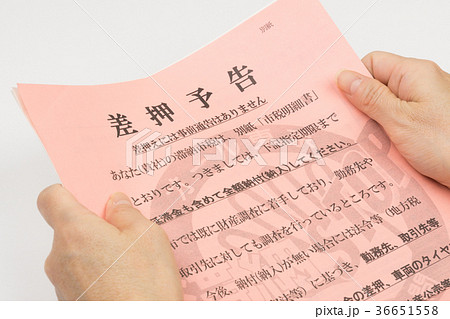 別紙
差押予告
差押えには事前通告はありません
あなた
の滞納市税は、別紙「市税明細書」
のとおりです。つきましては、
期限まで
延滞金も含めて全額納付(納入)してください。
では既に財産調査に着手しており、勤務先や
取引先に対しても調査を行っているところです。
今後、納付(納入)が無い場合には法令等(地方税
法等)に基づき、勤務先、取引先等
の差押、車両のタイヤ
公売等
PIXTA
pixta.jp - 36651558